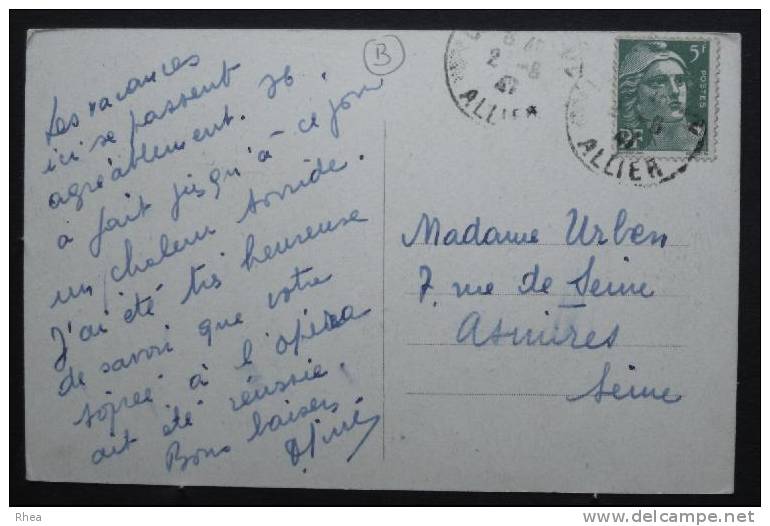 Les vacances
ici se passent
agréablement. Il
à fait jusqu'à ce jour
un chaleur torride.
J'ai été très heureuse
de savoir que votre
soirée à l'opéra
ait été réussie.
Bons baisers
B
2 -8
ALLIER
ALLIER
5F
POSTES
RF
Madame Urben
7 rue de Seine
Asnières
Seine
Rhea
www.delcampe.net